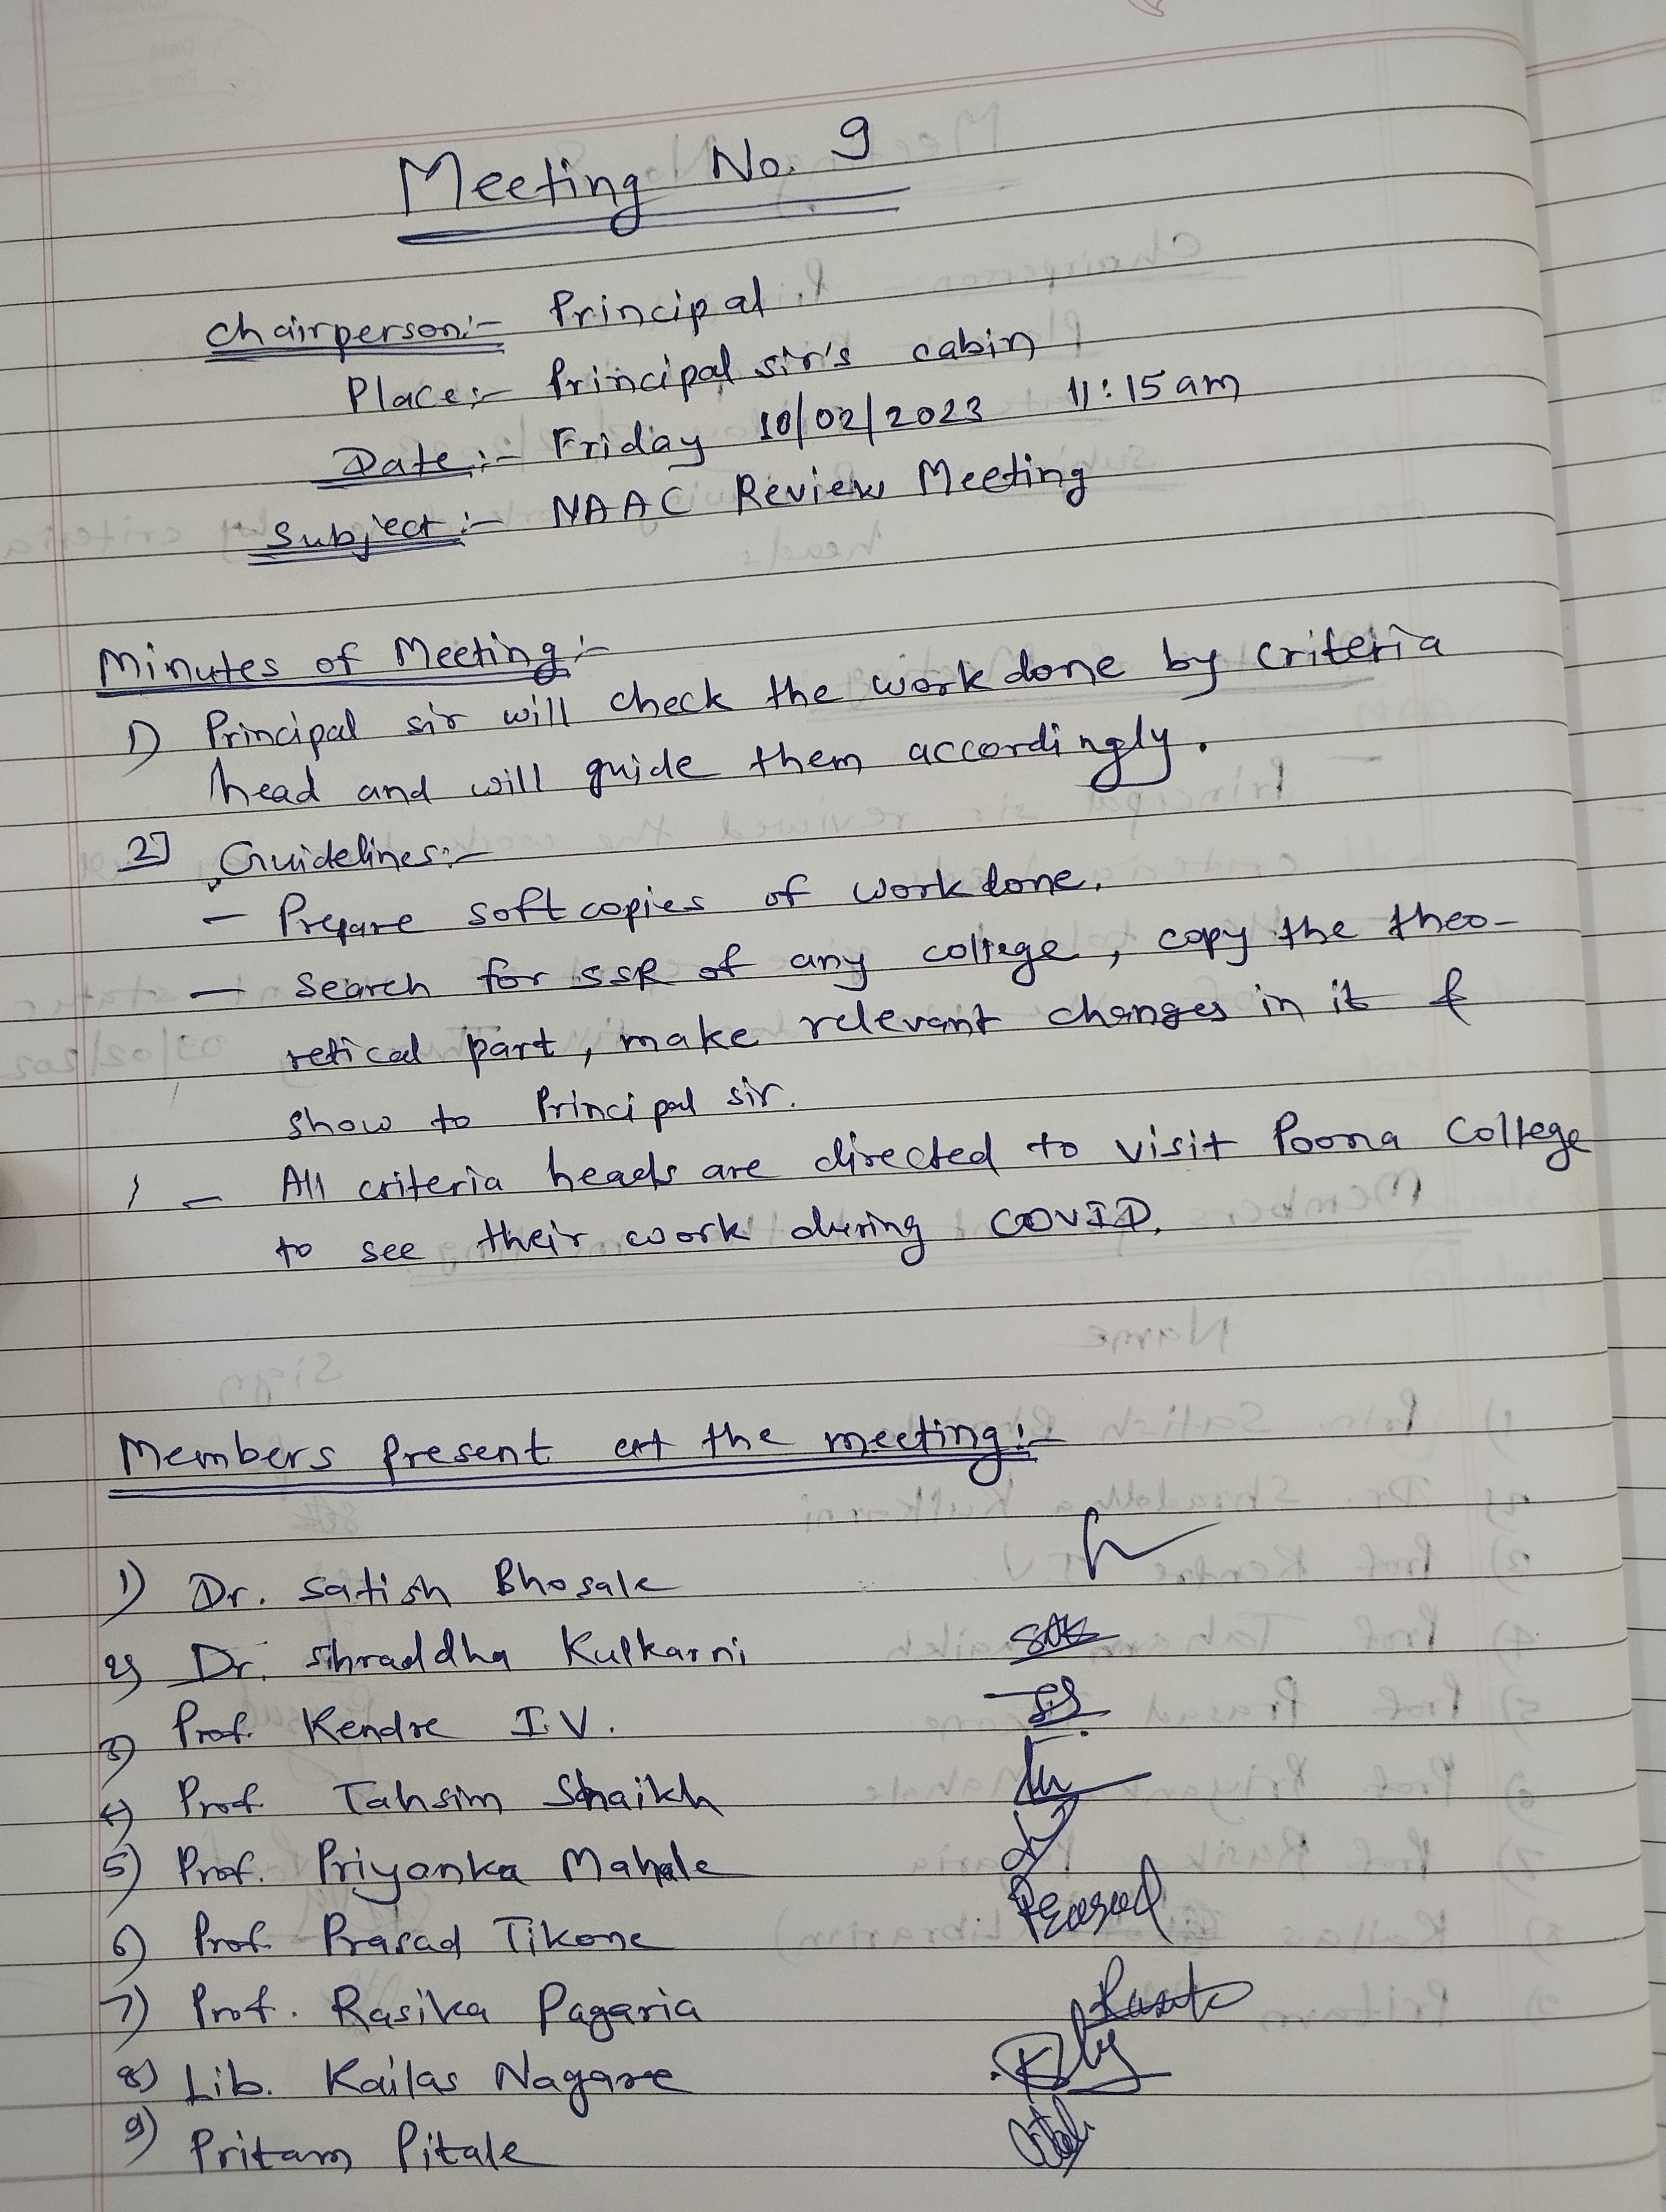 Meeting No. 9
Chairperson:- Principal
Place:- Principal sir's cabin
Date:- Friday 10/02/2023 11:15 am
Subject:- NAAC Review Meeting
Minutes of Meeting:-
1) Principal sir will check the work done by criteria
head and will guide them accordingly.
2] Guidelines:-
- Prepare soft copies of work done.
- Search for SSR of any college, copy the theo-
retical part, make relevant changes in it &
show to Principal sir.
- All criteria heads are directed to visit Poona College
to see their work during COVID.
Members present at the meeting:-
1) Dr. Satish Bhosale
2) Dr. Shraddha Kulkarni
3) Prof. Kendre I.V.
4) Prof. Tahsim Shaikh
5) Prof. Priyanka Mahale
6) Prof. Prasad Tikone
7) Prof. Rasika Pagaria
8) Lib. Kailas Nagare
9) Pritam Pitale